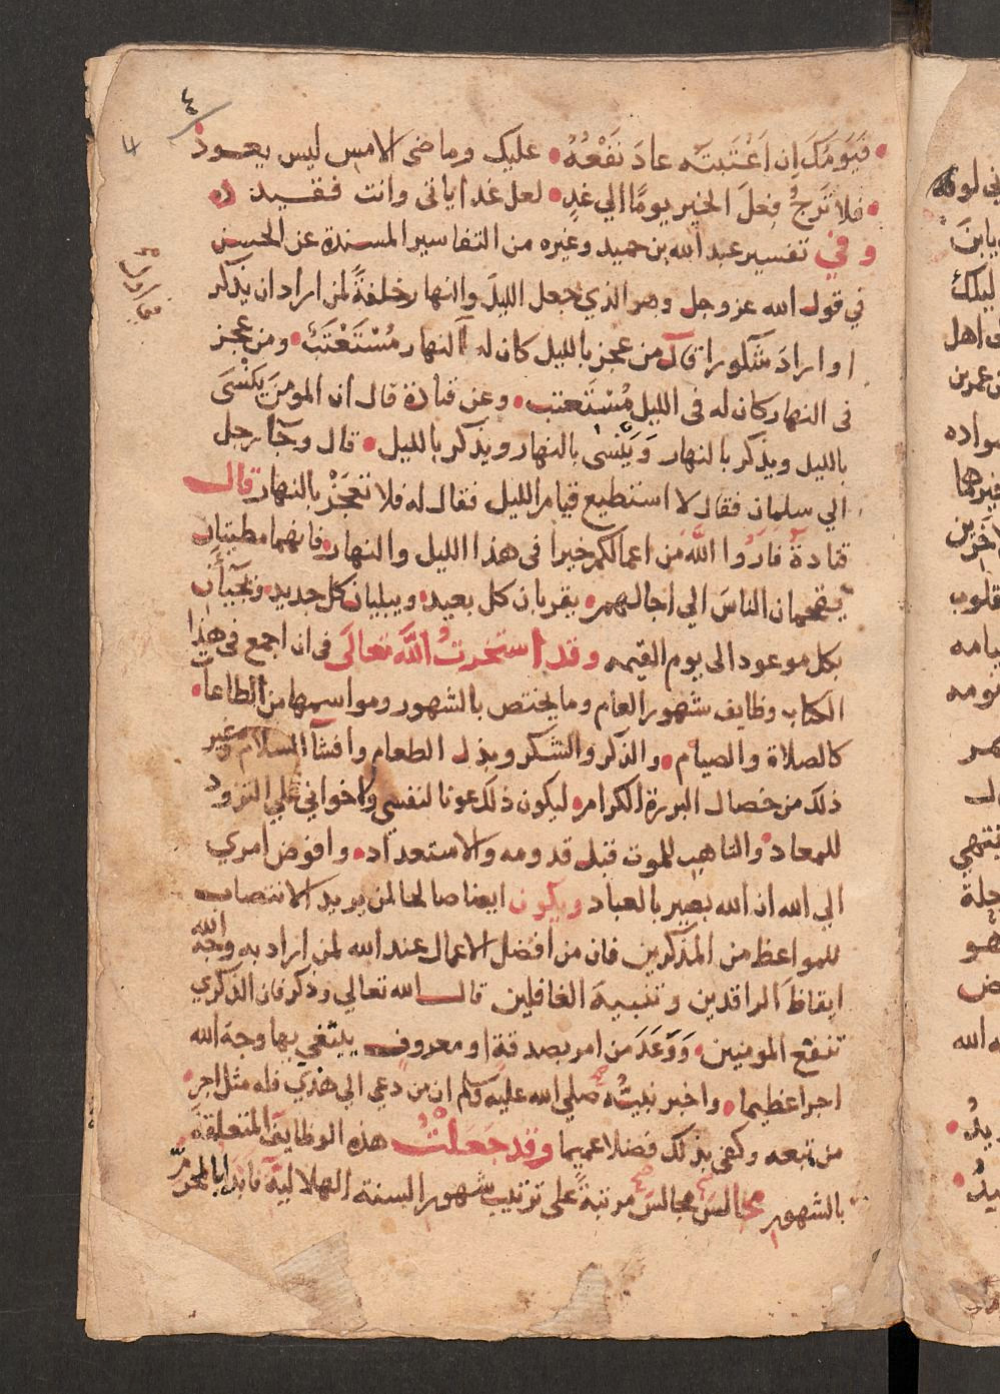 ٤
فَيَومُكَ اِن اَعْتَبتَه عادَ نَفْعُهُ عليك وماضى الامس ليس يعود
فلا تَرجُ فِعلَ الخير يومًا الي غدٍ لعل غدا ياتى وانت فقيد
وفي تفسير عبد الله بن حميد وغيره من التفاسير المسندة عن الحسن
في قول الله عز وجل وهو الذي جعل الليلَ والنهار خلفةً لمن اراد ان يذكر
او ارادَ شكورا قال من عجز بالليل كان له النهار مُسْتَعْتَبٌ ومن عجز
فى النهار كان له فى الليل مُسْتَعتب وعن قتادة قال ان المومنَ يَنْسَى
بالليل ويذكر بالنهار وَيَنْسى بالنهار ويذكر بالليل قال وجآ رجل
الي سلمان فقال لا استطيع قيام الليل فقال له فلا تعجَزْ بالنهار قال
قتادةُ فارُوا اللَّهَ من اعمالكم خيرا فى هذا الليل والنهار فانهما مطيتان
يقحمان الناسَ الي اجالهم يقربان كل بعيد ويبليان كل جديد ويجيآن
بكل موعود الى يوم القيمه وقد استخرتُ اللَّهَ تعالَى فى ان اجمع فى هذا
الكتاب وظايف شهور العام وما يختص بالشهور ومواسمها من الطاعات
كالصلاة والصيام والذكر والشكر وبذل الطعام وافشآ السلام وغير
ذلك من خصال البررة الكرام ليكون ذلك عونا لنفسي ولاخواني علي التزود
للمعاد والتاهب للموت قبل قدومه والاستعداد وافوض امري
الي الله ان الله بصير بالعباد ويكون ايضا صالحا لمن يريد الانتصاب
للمواعظ من المذكرين فان من افضل الاعمال عند الله لمن اراد به وجه الله
ايقاظَ الراقدين وتنبيهَ الغافلين قال الله تعالي وذكر فان الذكري
تنفع المومنين وَوَعَدَ من امر بصدقةٍ او معروف يبتغي بها وجهَ الله
اجرا عظيما واخبر نبيُّه صلي الله عليه وسلم ان من دعي الي هدي فله مثل اجر
من تبعه وكفى بذلك فضلا عميما وقد جَعَلْتُ هذه الوظايفَ المتعلقةَ
بالشهور مجالسَ مجالسَ مرتبةً على ترتيب شهور السنة الهلالية فابدا بالمحرّم